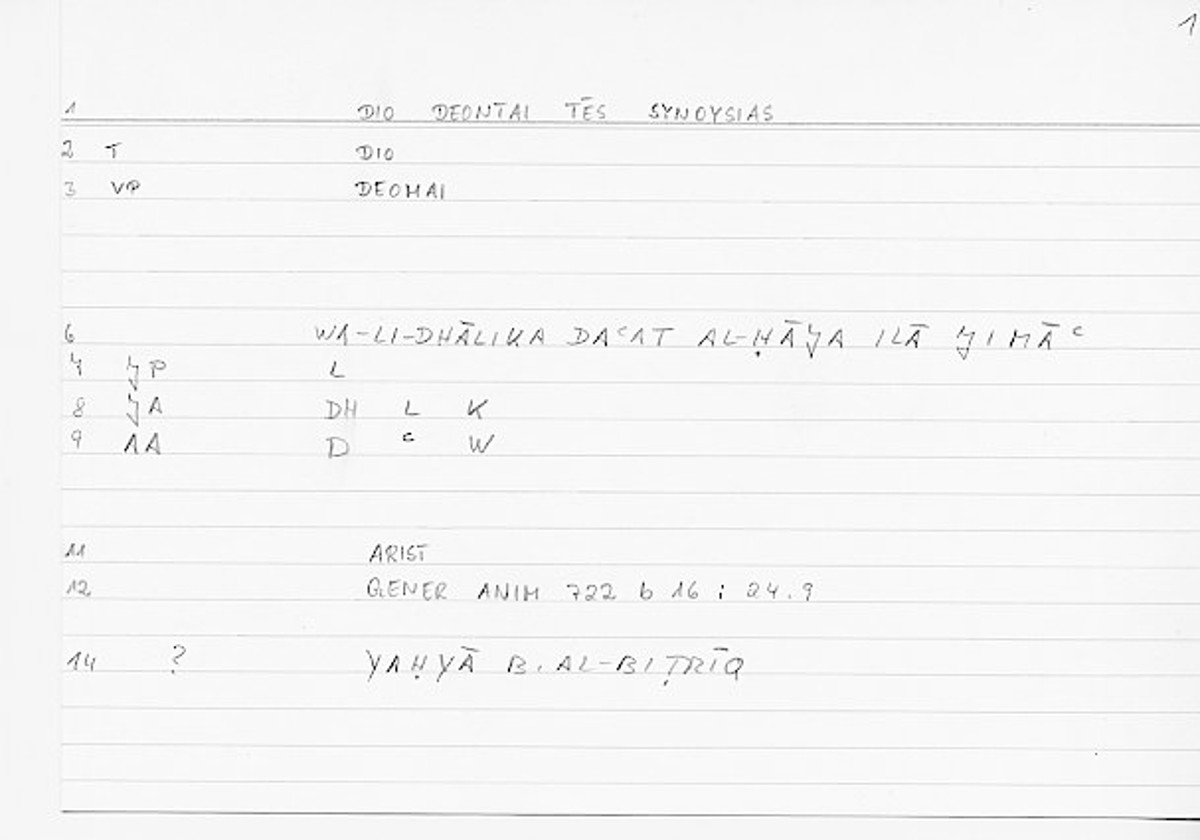 1
1 DIO DEONTAI TĒS SYNOYSIAS
2 T DIO
3 VP DEOMAI
6 WA-LI-DHĀLIKA DAᶜAT AL-ḤĀJA ILĀ JIMĀᶜ
7 JP L
8 JA DH L K
9 AA D ᶜ W
11 ARIST
12 GENER ANIM 722 b 16 ; 24.9
14 ? YAḤYĀ B. AL-BIṬRĪQ